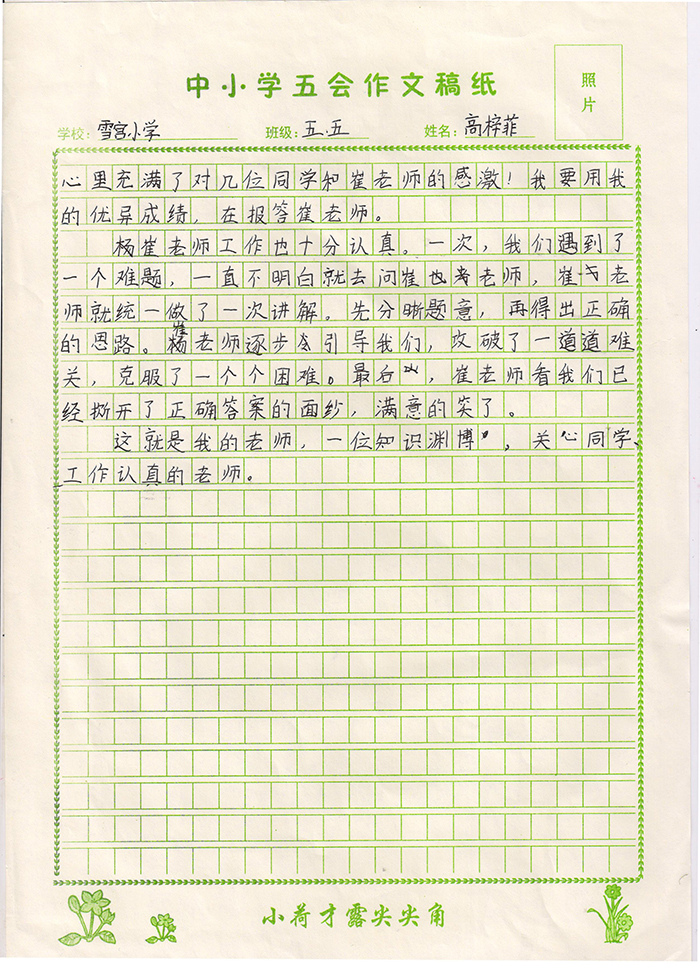 中小学五会作文稿纸
照片
学校：雪宫小学 班级：五.五 姓名：高梓菲
心里充满了对几位同学和崔老师的感激！我要用我
的优异成绩，在报答崔老师。
杨崔老师工作也十分认真。一次，我们遇到了
一个难题，一直不明白就去问崔也老师，崔老
师就统一做了一次讲解。先分晰题意，再得出正确
的思路。崔老师逐步引导我们，攻破了一道道难
关，克服了一个个困难。最后，崔老师看我们已
经撕开了正确答案的面纱，满意的笑了。
这就是我的老师，一位知识渊博，关心同学、
工作认真的老师。
小荷才露尖尖角